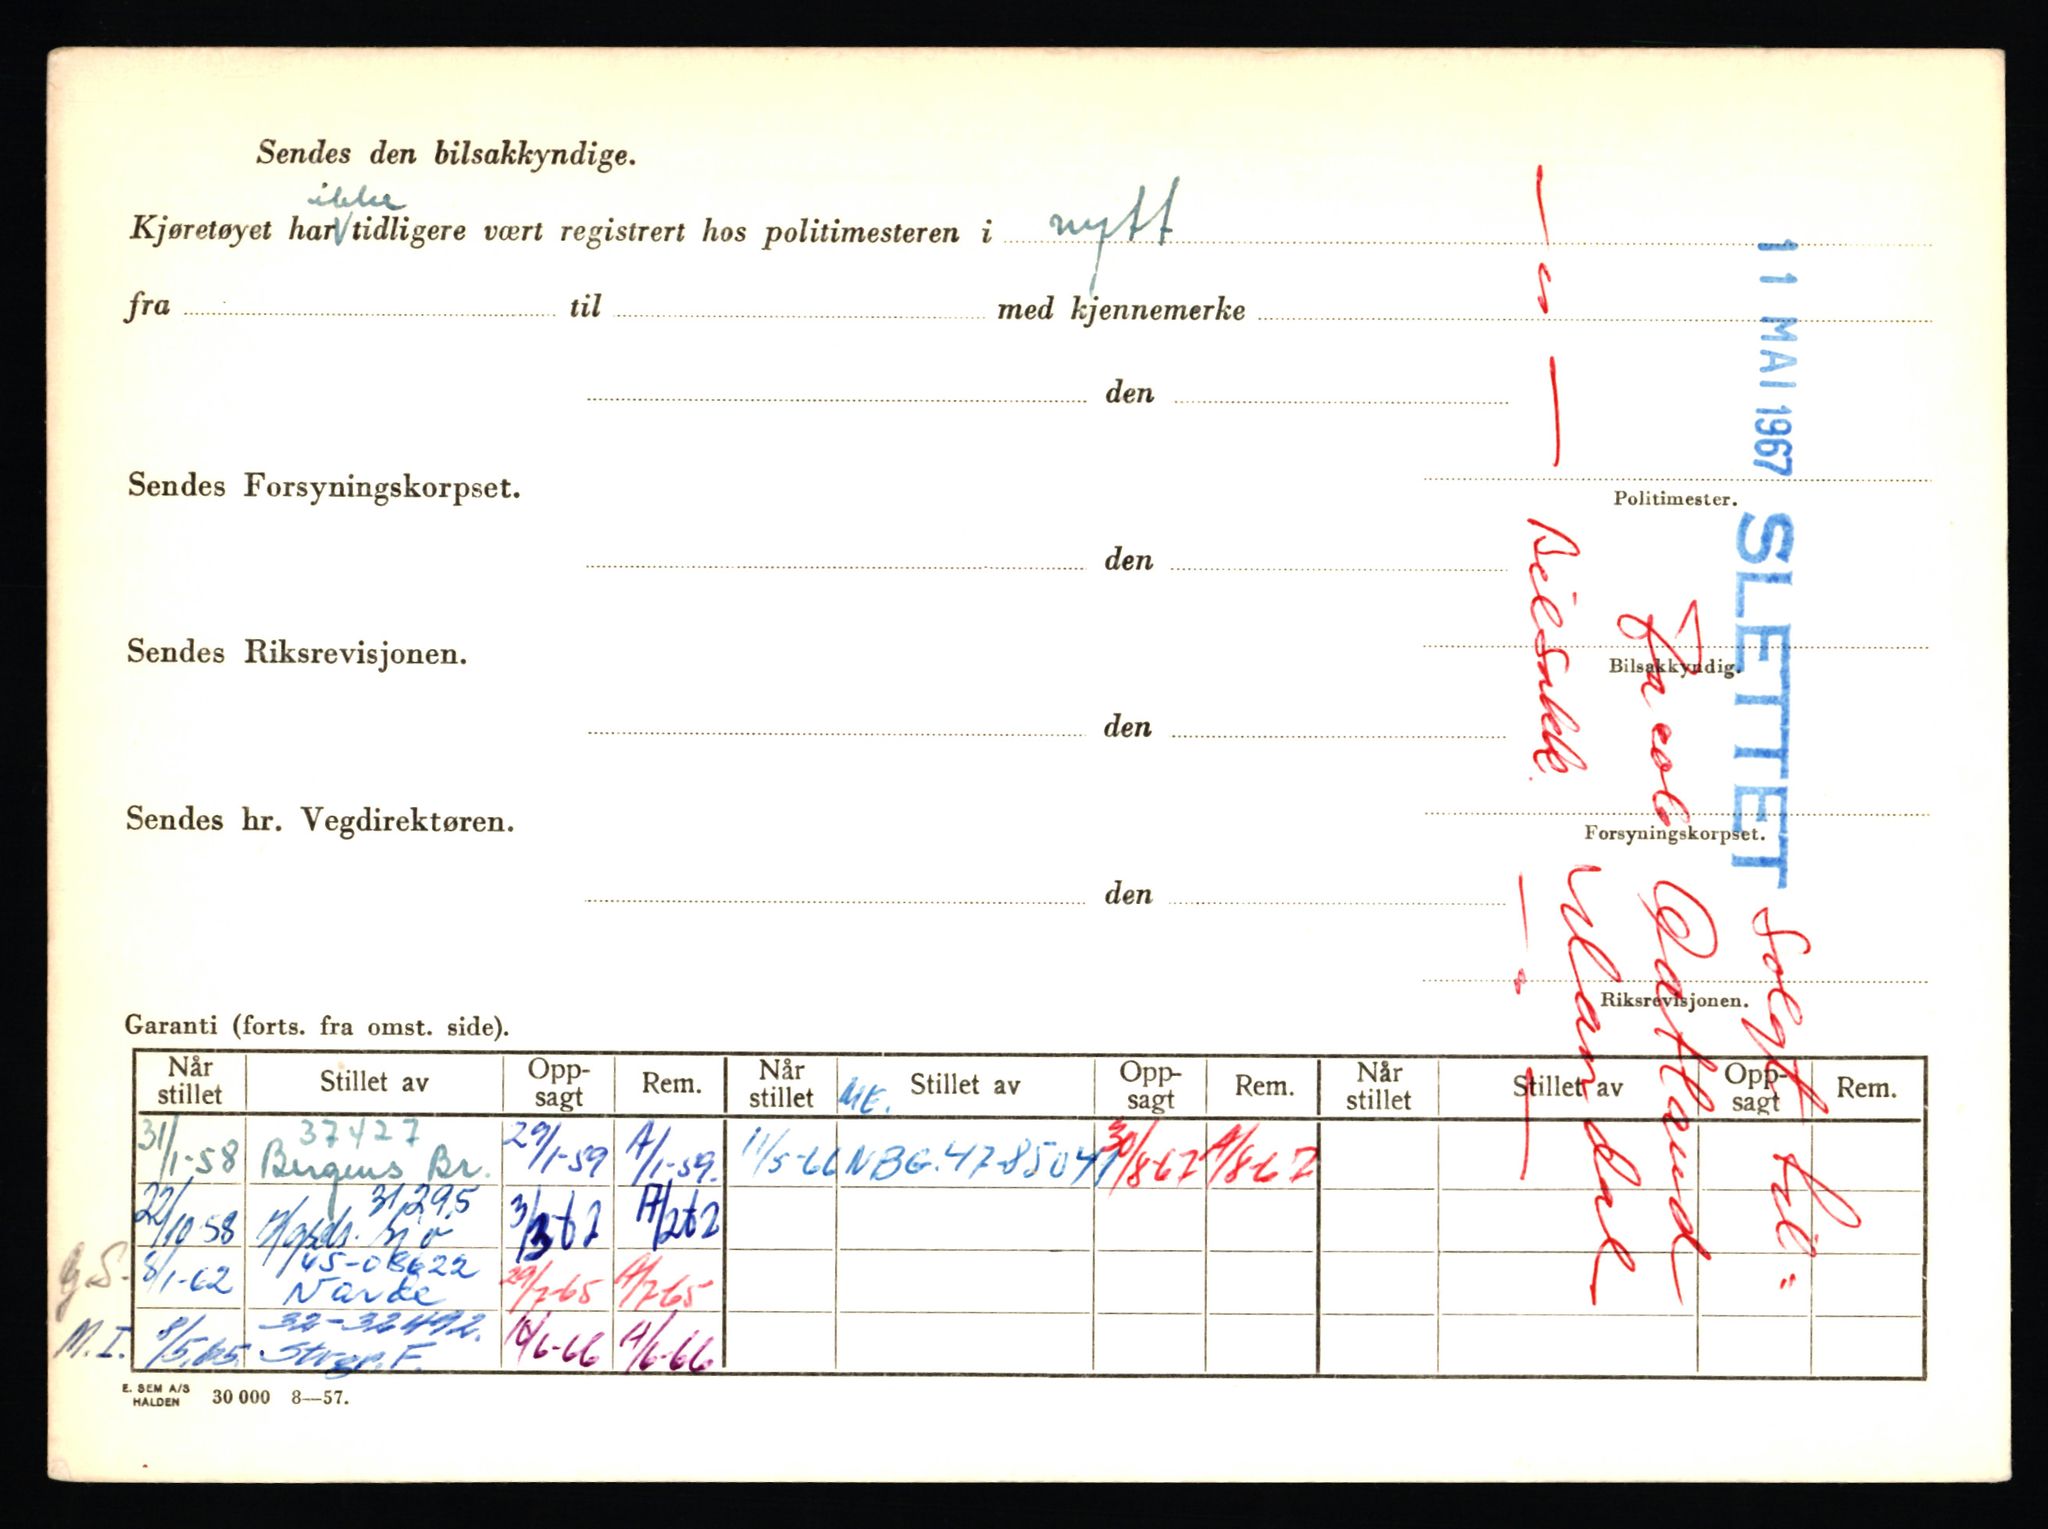 Sendes den bilsakkyndige.
ikke
Kjøretøyet har tidligere vært registrert hos politimesteren i nytt
fra til med kjennemerke
den
Politimester.
Sendes Forsyningskorpset.
den
Bilsakkyndig.
Sendes Riksrevisjonen.
den
Forsyningskorpset.
Sendes hr. Vegdirektøren.
den
Riksrevisjonen.
11 MAI 1967 SLETTET
Solgt til:
Jacob Østland
Ulandal
Garanti (forts. fra omst. side).
Når stillet Stillet av Opp-sagt Rem. Når stillet Stillet av Opp-sagt Rem. Når stillet Stillet av Opp-sagt Rem.
ME.
31/1-58 37427 Bergens Br. 29/1-59 A/1-59. 11/5-66 NBG.47-85041 30/8-67 A/8-67
22/10-58 31,295 3/3-62 A/2-62
G.S. 8/1-62 45-08622 Norske 29/7-65 A/7-65
M.I. 8/5.65. 32-32492. Strgr. F. 14/6-66 A/6-66.
E. SEM A/S HALDEN 30 000 8—57.